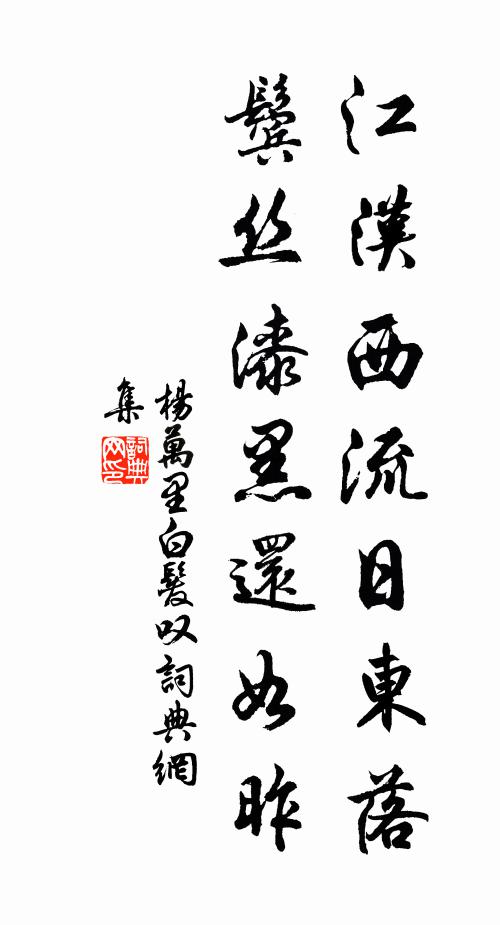 江漢西流日東落
鬢丝漆黑還如昨
楊萬里白髮叹詞典網
集
詞典
网印